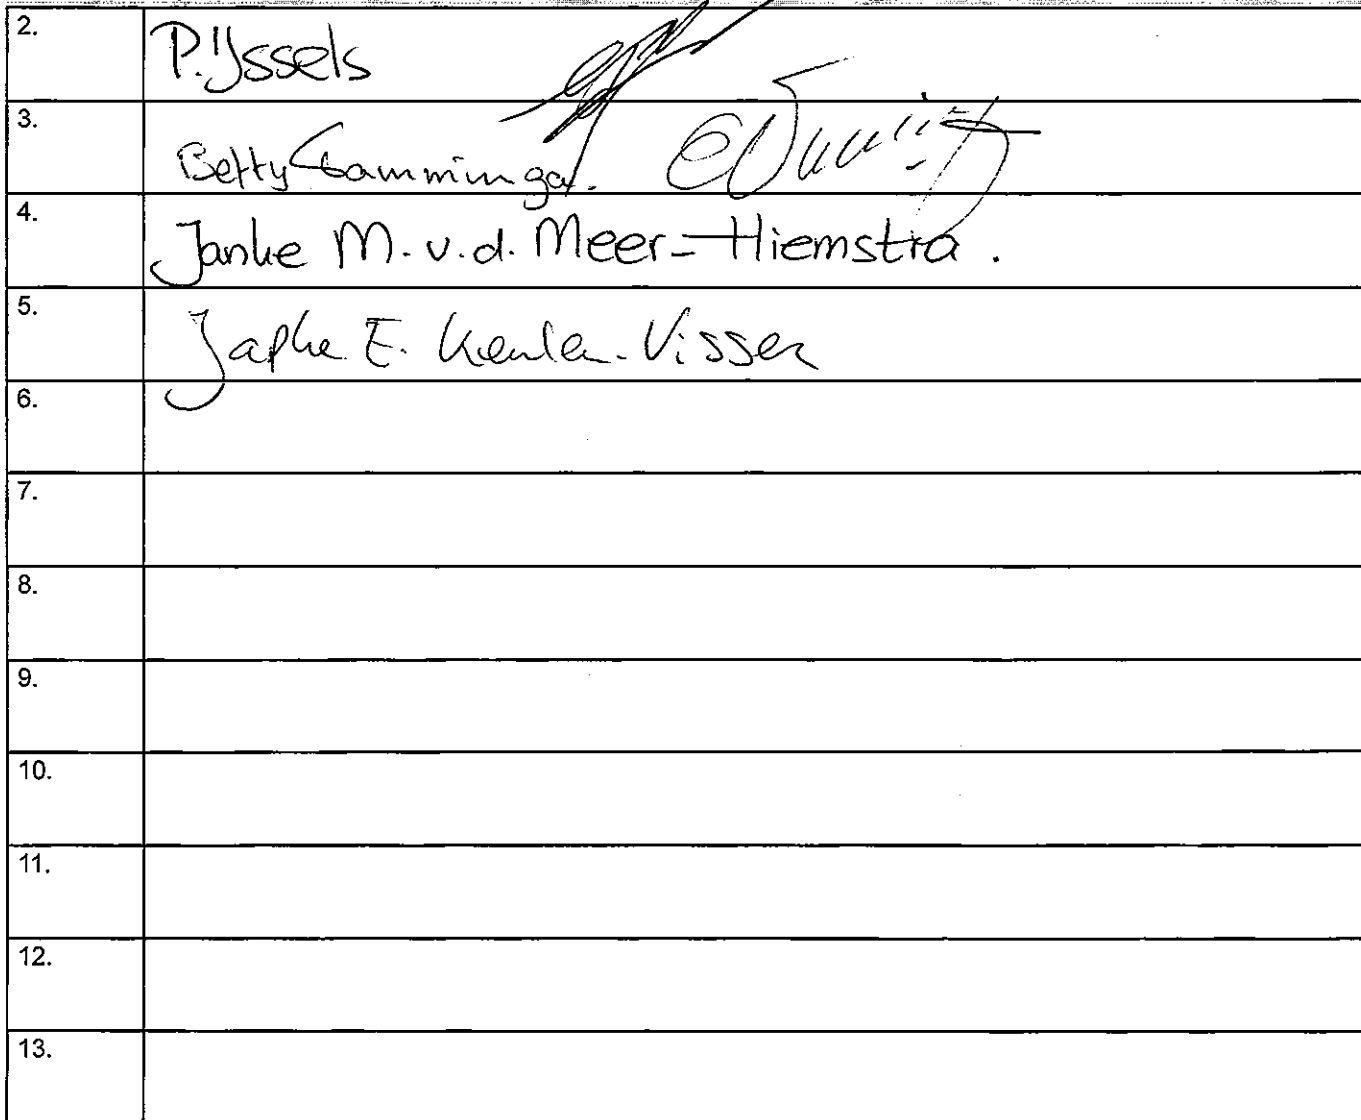 2. P. IJssels
3. Betty Gamminga.
4. Janke M. v.d. Meer-Hiemstra.
5. Japke E. Visser
6.
7.
8.
9.
10.
11.
12.
13.